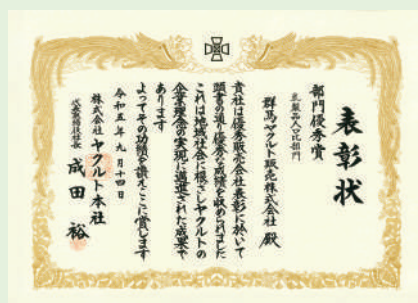 表彰状
部門優秀賞
乳製品人口比部門
群馬ヤクルト販売株式会社 殿
貴社は優秀販売会社表彰に於いて
頭書の通り優秀な成績を収められました
これは地域社会に根ざしヤクルトの
企業理念の実現に邁進された成果で
あります
よってその功績を讃えここに賞します
令和五年九月十四日
株式会社 ヤクルト本社
代表取締役社長 成田 裕